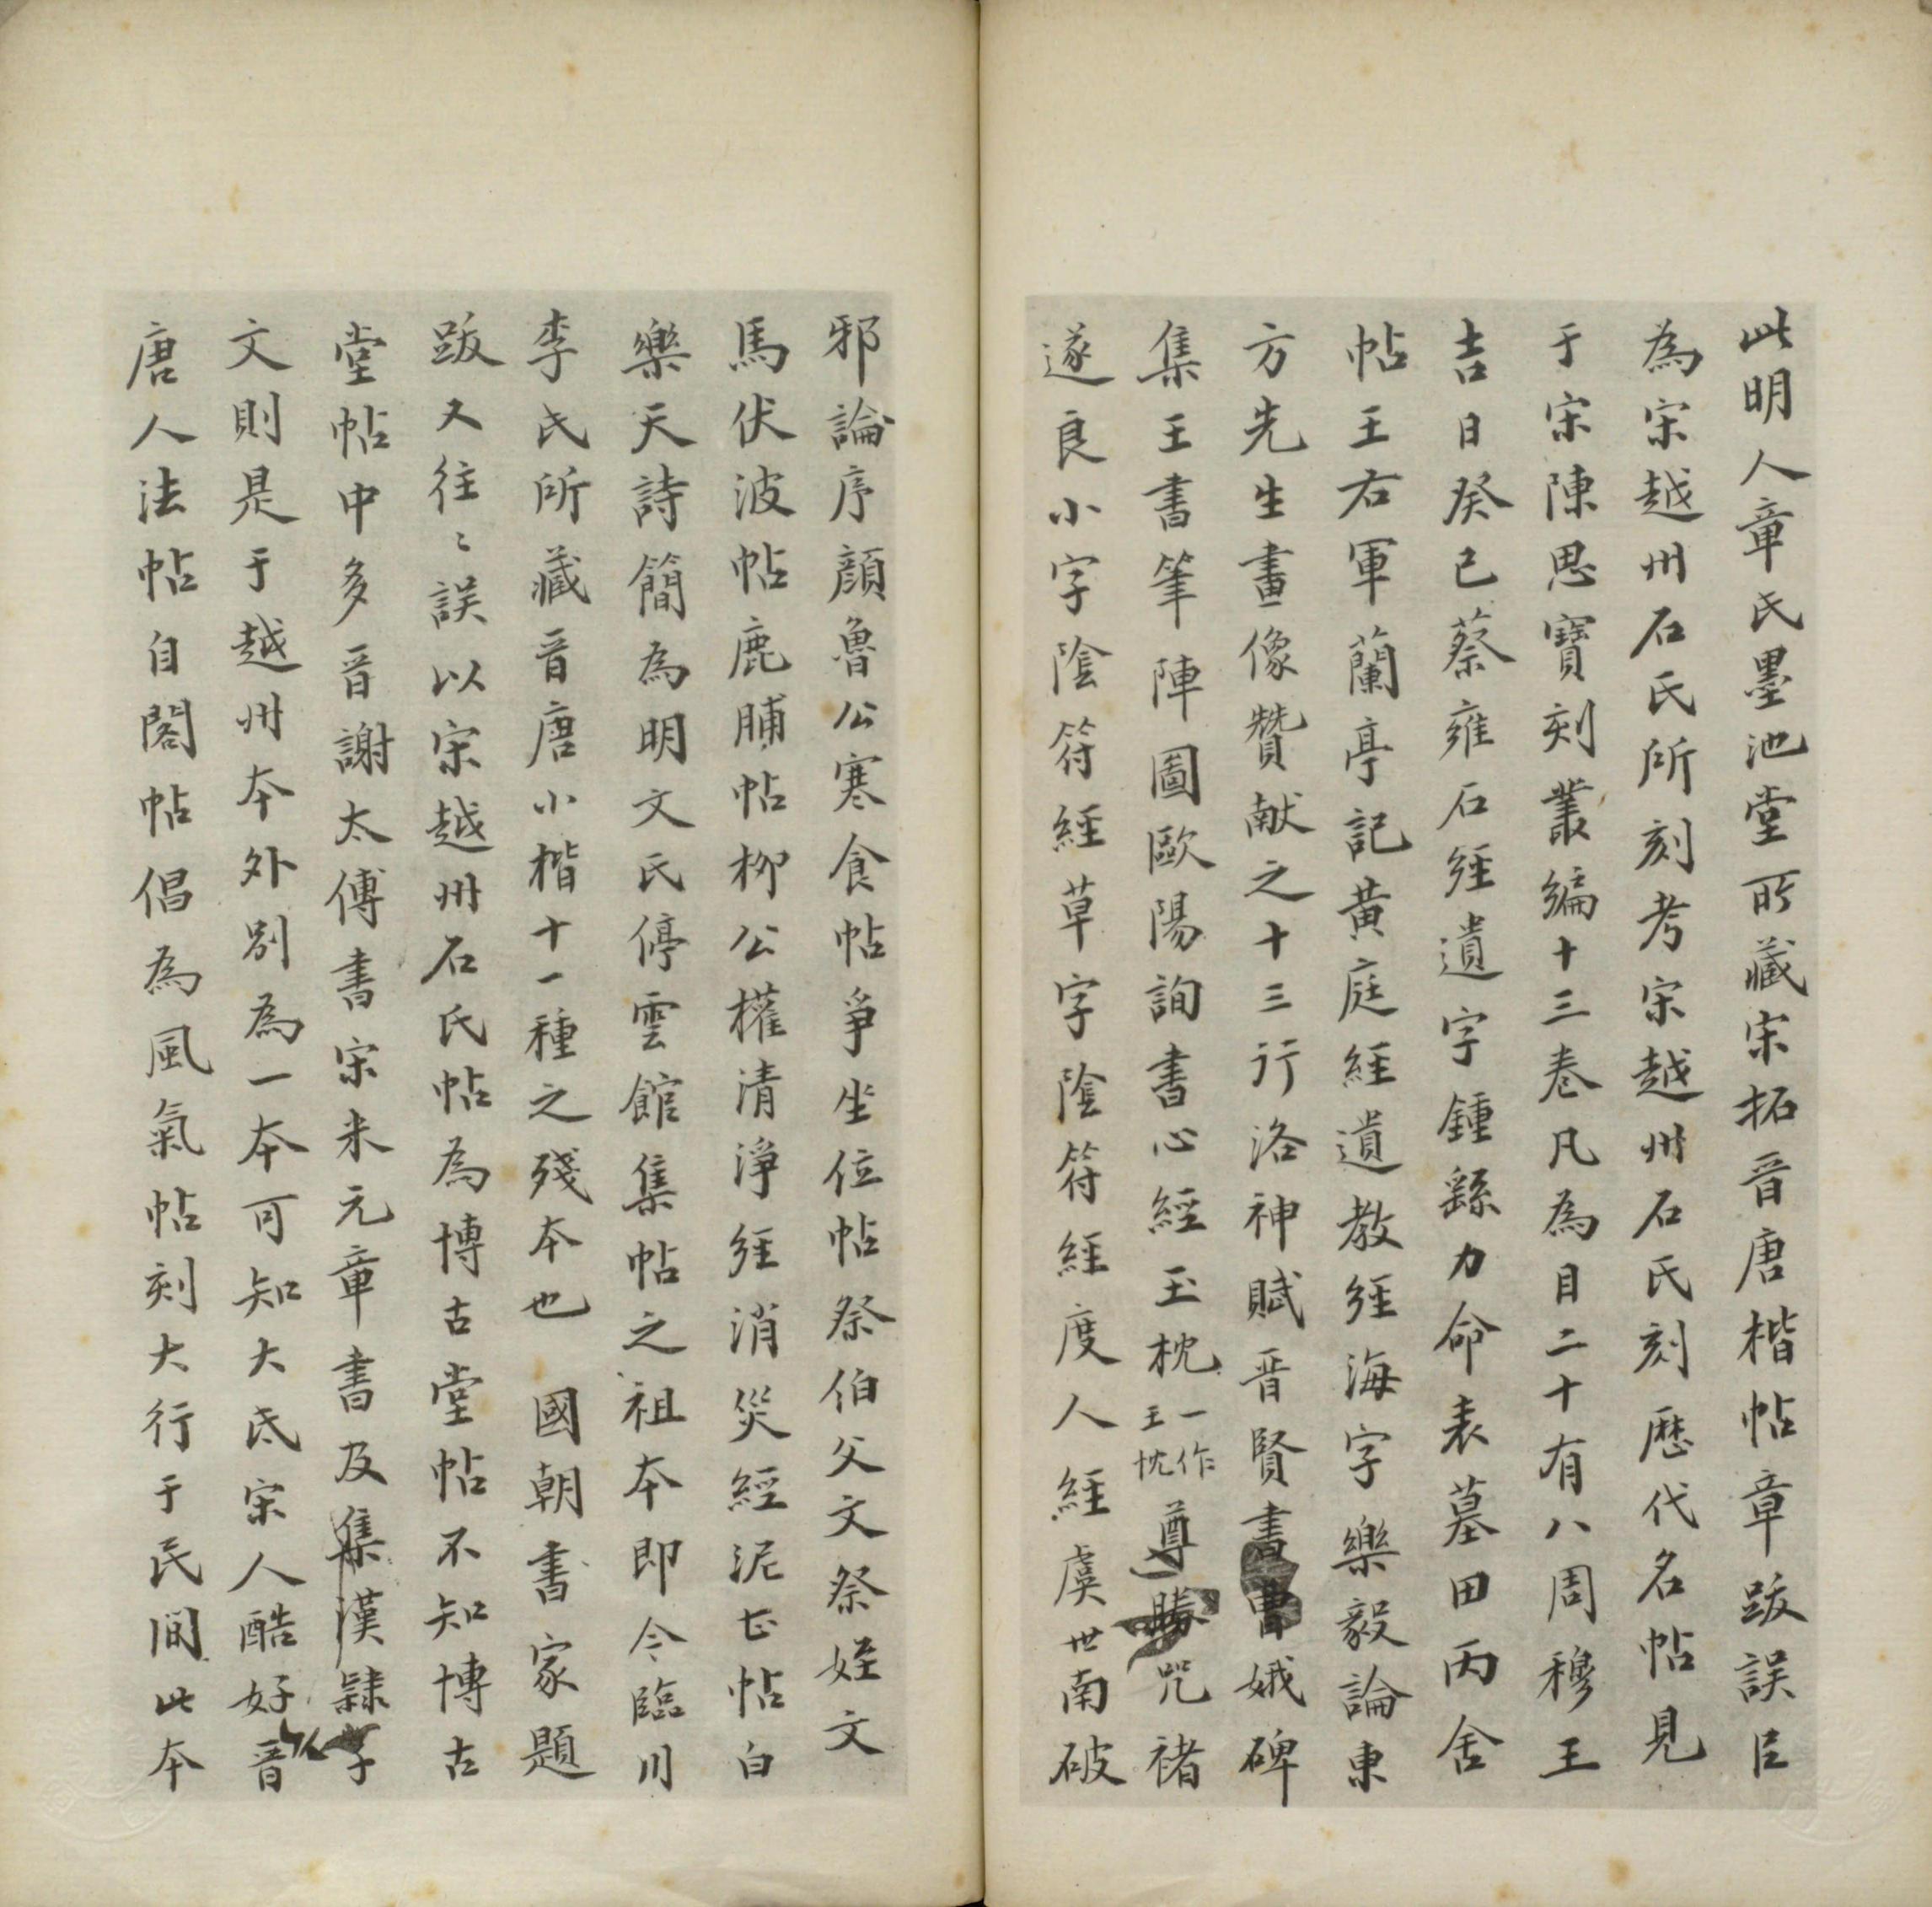 此明人章氏墨池堂所藏宋拓晉唐楷帖章跋誤臣
為宋越州石氏所刻考宋越州石氏刻歷代名帖見
于宋陳思寶刻叢編十三卷凡為目二十有八周穆王
吉日癸巳蔡雍石經遺字鍾繇力命表墓田丙舍
帖王右軍蘭亭記黃庭經遺教經海字樂毅論東
方先生畫像贊献之十三行洛神賦晉賢書曹娥碑
集王書筆陣圖歐陽詢書心經玉枕一作王忱尊勝咒褚
遂良小字陰符經草字陰符經度人經虞世南破
邪論序顏魯公寒食帖爭坐位帖祭伯父文祭姪文
馬伏波帖鹿脯帖柳公權清淨經消災經泥甚帖白
樂天詩簡為明文氏停雲館集帖之祖本即今臨川
李氏所藏晉唐小楷十一種之殘本也 國朝書家題
跋又往〻誤以宋越州石氏帖為博古堂帖不知博古
堂帖中多晉謝太傅書宋米元章書及集漢隸字
文則是于越州本外別為一本可知大氐宋人酷好晉
唐人法帖自閣帖倡為風氣帖刻大行于民間此本